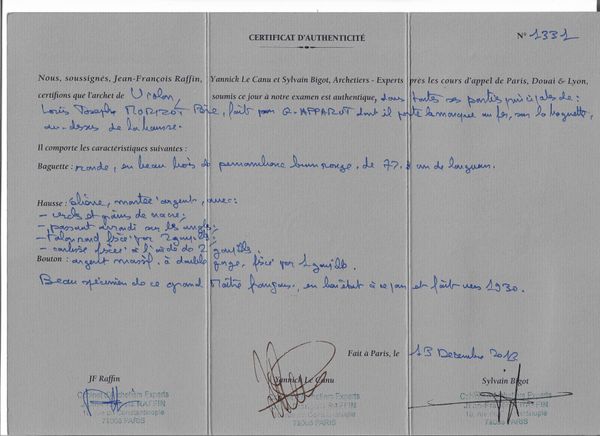 CERTIFICAT D'AUTHENTICITÉ
N° 1331
Nous, soussignés, Jean-François Raffin, Yannick Le Canu et Sylvain Bigot, Archetiers - Experts près les cours d'appel de Paris, Douai & Lyon,
certifions que l'archet de Violon, soumis ce jour à notre examen est authentique, dans toutes ses parties principales de:
Louis Joseph MORIZOT Père, fait pour G. APPAROT dont il porte la marque au fer, sur la baguette,
au-dessus de la hausse.
Il comporte les caractéristiques suivantes :
Baguette : ronde, en beau bois de pernambouc brun rouge, de de longueur.
Hausse : ébène, montée argent, avec:
- et grains de nacre;
- passant arrondi sur les angles;
- talon rond fixé par 2 goupilles;
- coulisse fixée à l'aide de 2 goupilles.
Bouton : argent massif, à double gorge, fixé par 1 goupille.
Beau spécimen de ce grand Maître français, en et fait vers 1930.
Fait à Paris, le 13 Décembre
JF Raffin
Yannick Le Canu
Sylvain Bigot
Cabinet d'Archetiers Experts
JEAN-FRANÇOIS RAFFIN
de Constantinople
75008 PARIS